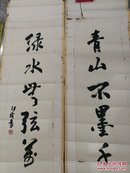 青山不墨千
绿水無弦萬